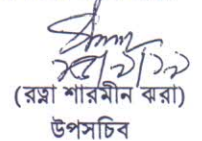 (রত্না শারমীন ঝরা)
উপসচিব